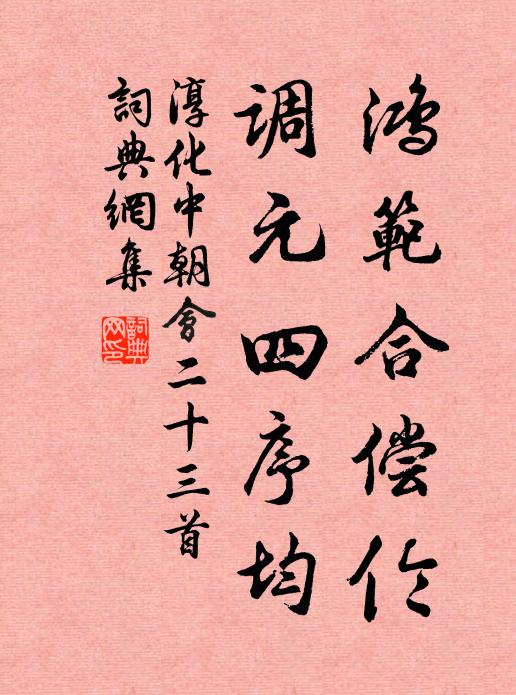 鸿範合偿伦
调元四序均
淳化中朝會二十三首
詞典網集
詞典
网印